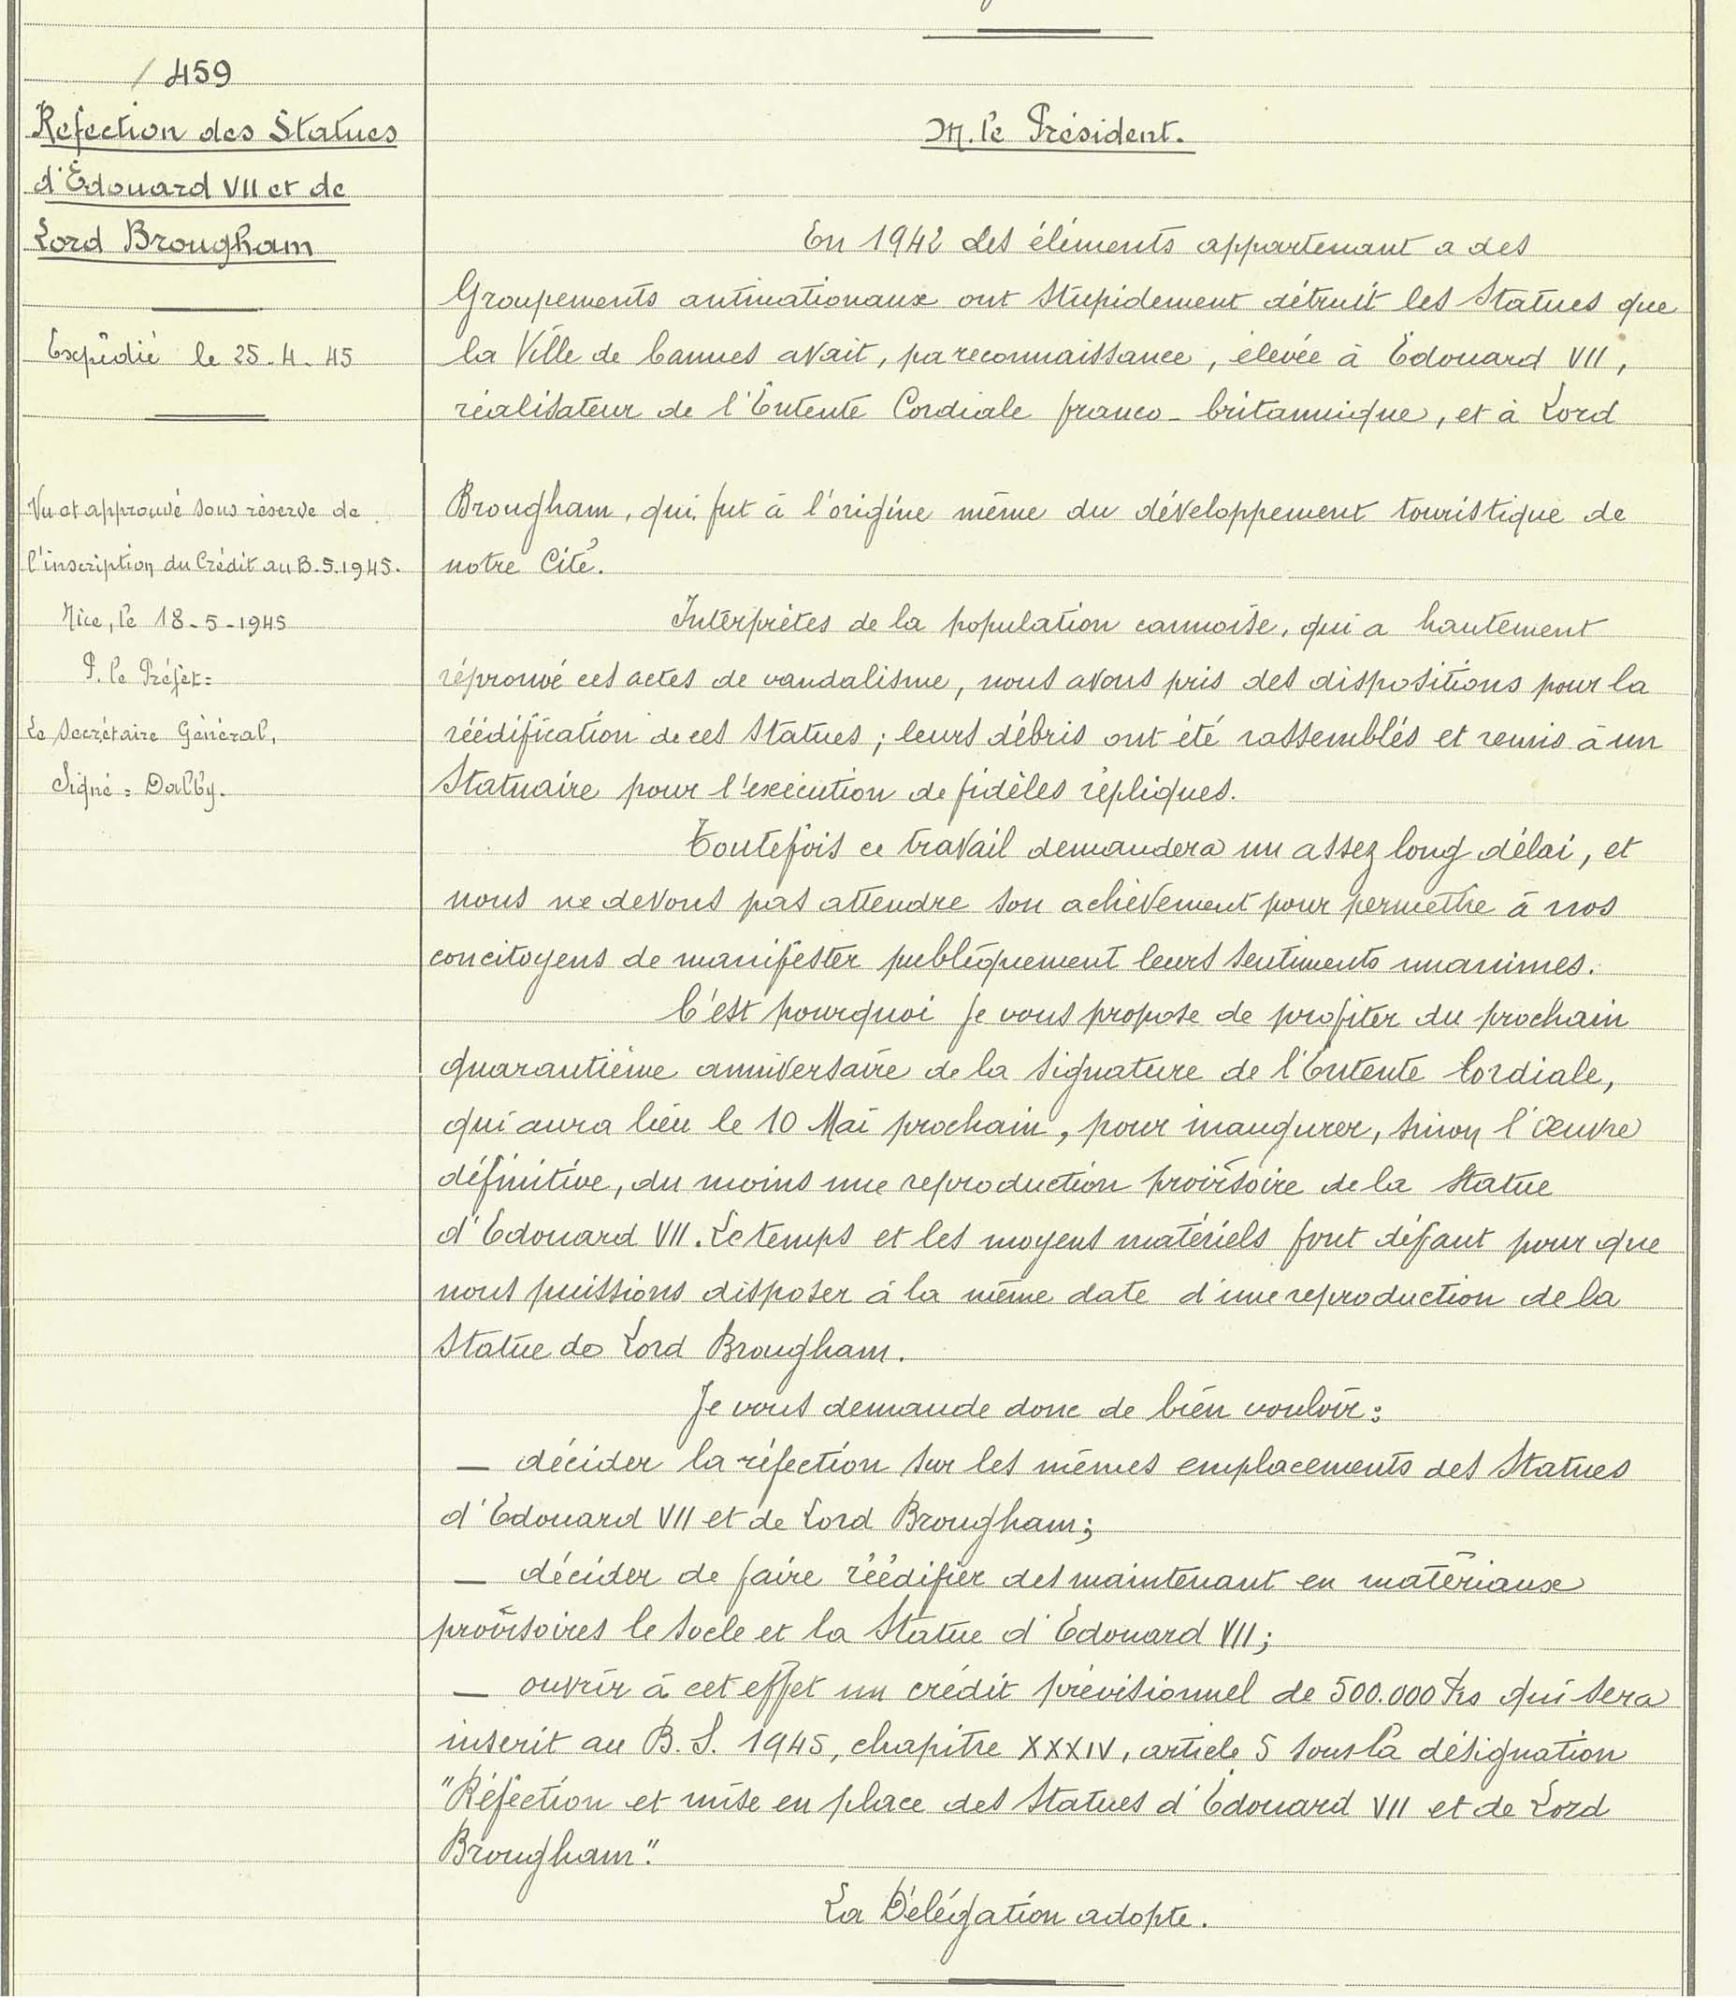 / 459
Refection des Statues
d'Édouard VII et de
Lord Brougham
Expédié le 25.4.45
Vu et approuvé sous réserve de
l'inscription du Crédit au B.S.1945.
Nice, le 18-5-1945
P. le Préfet:
Le Secrétaire Général,
Signé: Dalby.
M. le Président.
En 1942 des éléments appartenant a des
Groupements antinationaux ont stupidement détruit les Statues que
la Ville de Cannes avait, pa reconnaissance, élevée à Edouard VII,
réalisateur de l'Entente Cordiale franco-britannique, et à Lord
Brougham, qui fut à l'origine même du développement touristique de
notre Cité.
Interprètes de la population cannoise, qui a hautement
réprouvé ces actes de vandalisme, nous avons pris des dispositions pour la
réédification de ces Statues; leurs débris ont été rassemblés et remis à un
Statuaire pour l'exécution de fidèles répliques.
Toutefois ce travail demandera un assez long délai, et
nous ne devons pas attendre son achèvement pour permettre à nos
concitoyens de manifester publiquement leurs sentiments unanimes.
C'est pourquoi je vous propose de profiter du prochain
quarantième anniversaire de la signature de l'Entente Cordiale,
qui aura lieu le 10 Mai prochain, pour inaugurer, sinon l'œuvre
définitive, du moins une reproduction provisoire de la Statue
d'Edouard VII. Le temps et les moyens matériels font défaut pour que
nous puissions disposer à la même date d'une reproduction de la
Statue de Lord Brougham.
Je vous demande donc de bien vouloir:
— décider la réfection sur les mêmes emplacements des Statues
d'Edouard VII et de Lord Brougham;
— décider de faire réédifier des maintenant en matériaux
provisoires le socle et la Statue d'Edouard VII;
— ouvrir à cet effet un crédit prévisionnel de 500.000 Frs qui sera
inscrit au B.S. 1945, chapitre XXXIV, article 5 sous la désignation
"Réfection et mise en place des Statues d'Edouard VII et de Lord
Brougham".
La Délégation adopte.